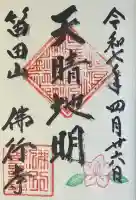 令和七年四月廿六日
天晴地明
笛田山
佛行寺